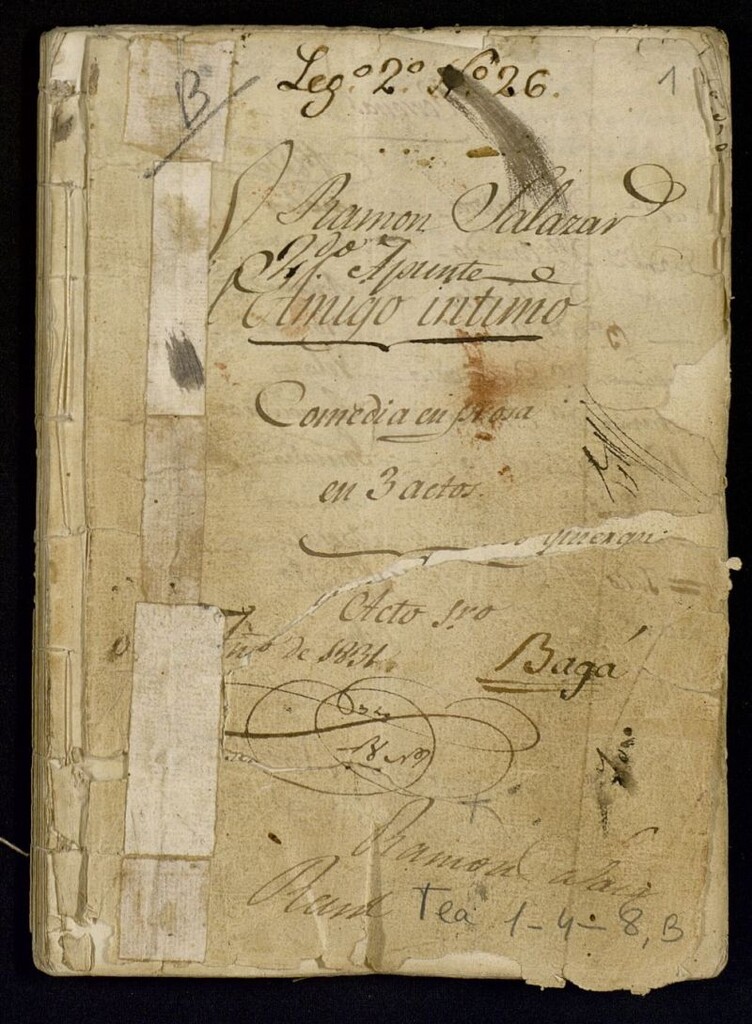 B
Leg.º 2.º Nº 26.
1
Ramon Salazar
2.do Apunte
Amigo intimo
Comedia en prosa
en 3 actos.
Acto 1ro
Año de 1831.
Bagá
Ramon
Tea 1-4-8, B